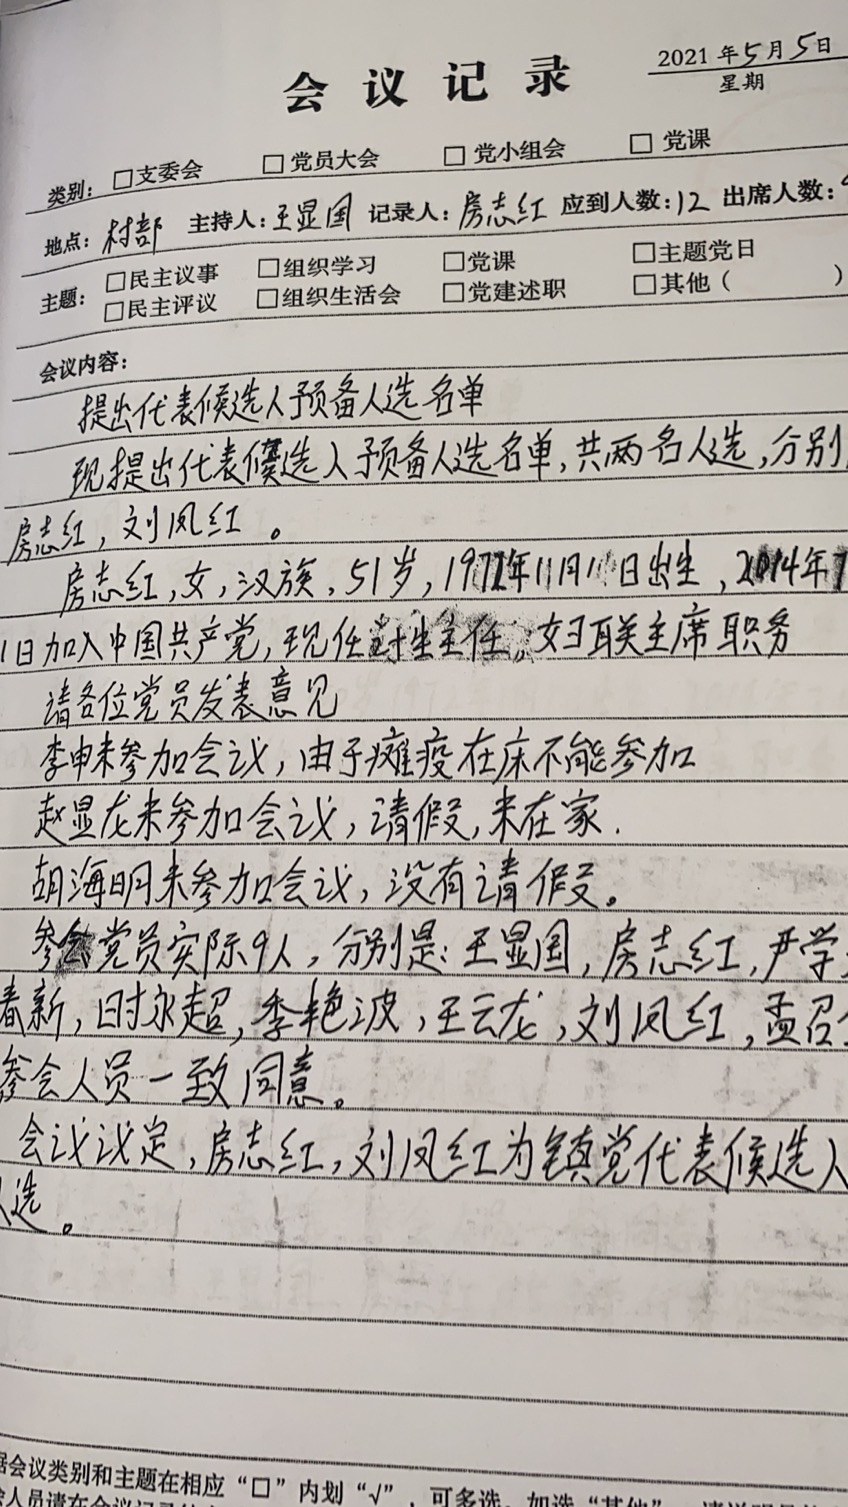 2021年5月5日
会议记录
星期
类别: □支委会 □党员大会 □党小组会 □党课
地点: 村部 主持人: 王显国 记录人: 房志红 应到人数: 12 出席人数:
主题: □民主议事 □组织学习 □党课 □主题党日
□民主评议 □组织生活会 □党建述职 □其他（ ）
会议内容:
提出代表候选人预备人选名单
现提出代表候选人预备人选名单,共两名人选,分别
房志红,刘凤红。
房志红,女,汉族,51岁,1971年11月11日出生,2014年7
1日加入中国共产党,现任 主任,妇联主席职务
请各位党员发表意见
李申未参加会议,由于瘫痪在床不能参加
赵显龙未参加会议,请假,未在家.
胡海明未参加会议,没有请假。
参会党员实际9人,分别是:王显国,房志红,尹学
春新,时永超,季艳波,王云龙,刘凤红,孟召
参会人员一致同意。
会议议定,房志红,刘凤红为镇党代表候选人
人选。
会议类别和主题在相应“□”内划“√”,可多选。如选“其他”
人员请在会议记录